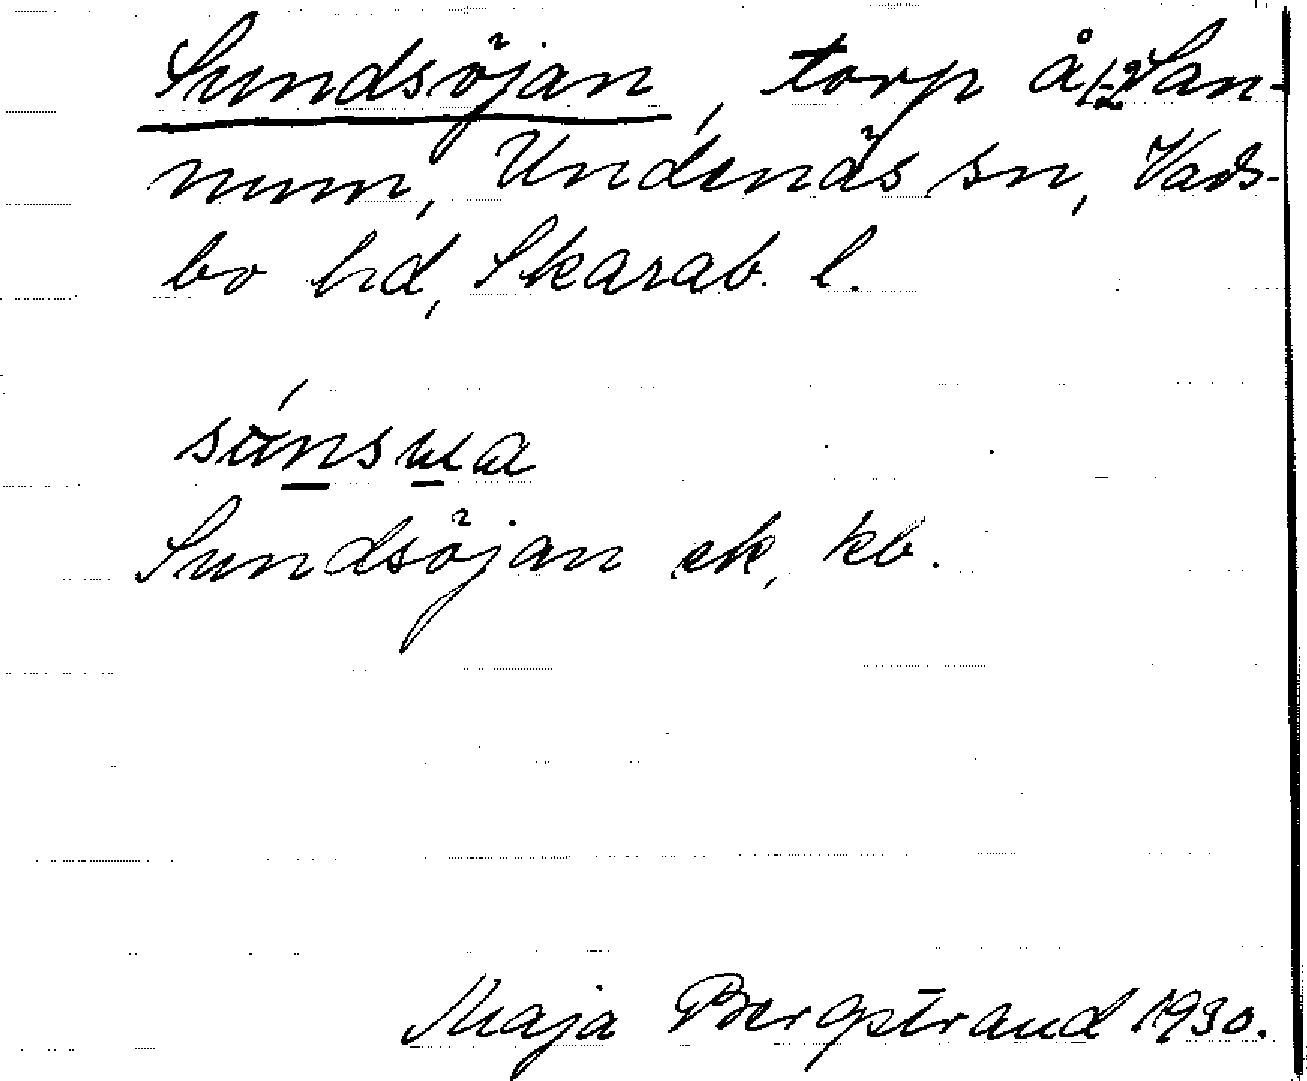 Sundsöjan, torp å 1-2 San-
num, Undenäs sn, Vads-
bo hd, Skarab. l.
Sundsöjan ek, kb.
Maja Bergstrand 1930.